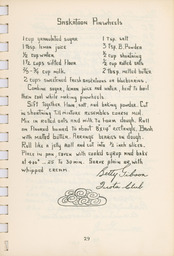 Saskatoon Pinwheels
1 cup granulated sugar
1 tbsp. lemon juice
½ cup water
1½ cups sifted flour
⅔-¾ cup milk
1 tsp. salt
3 tsp. B. Powder
½ cup shortening
½ cup rolled oats
2 tbsp. melted butter
2 cups sweetened fresh saskatoons or blueberries.
Combine sugar, lemon juice and water, heat to boil
then cool while making pinwheels.
Sift together flour, salt, and baking powder. Cut
in shortening till mixture resembles coarse meal.
Mix in rolled oats and milk to form dough. Roll
on floured board to about rectangle. Brush
with melted butter. Arrange berries on dough.
Roll like a jelly roll and cut into ½ inch slices.
Place in pan, cover with cooled syrup and bake
at 25 to 30 min. Serve plain or with
whipped cream.
Betty Gibson
29